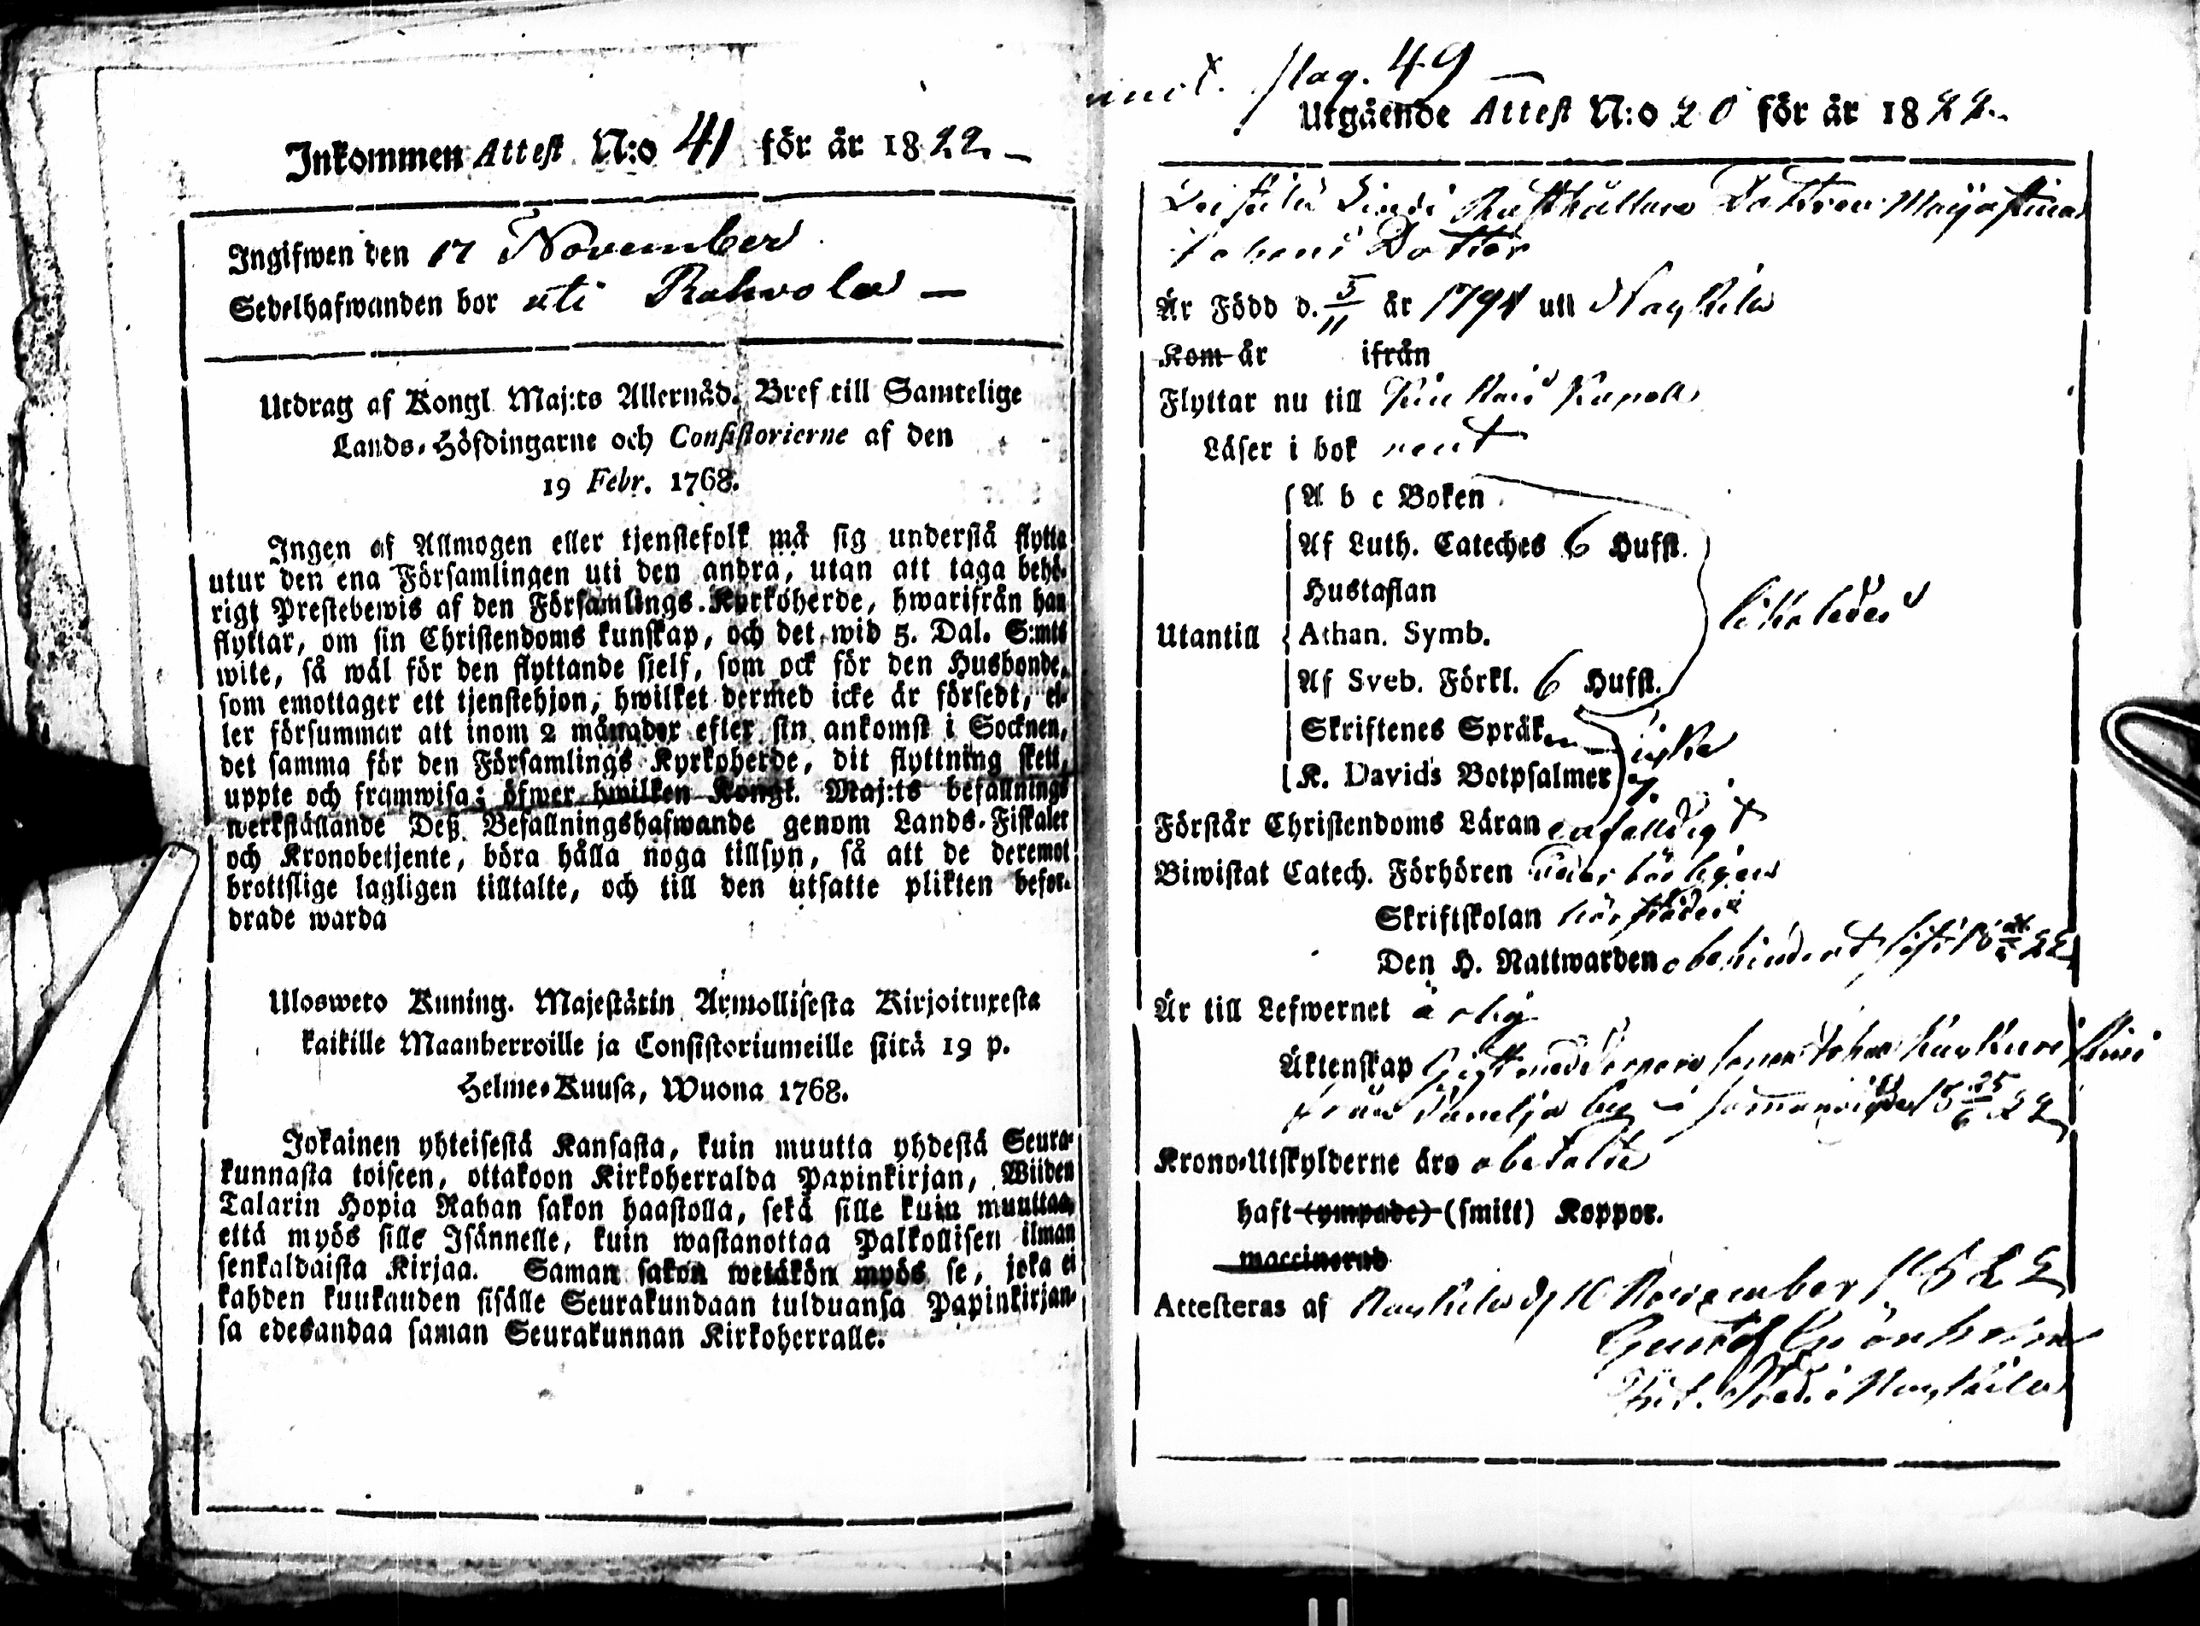 Inkommen Attest N:o 41 för år 1822.
Ingifwen den 17 November
Sedelhafwanden bor uti Rahvola
Utdrag af Kongl. Maj:ts Allernåd. Bref till Samtelige
Lands-Höfdingarne och Consistorierne af den
19 Febr. 1768.
Ingen af Allmogen eller tjenstefolk må sig understå flytta
utur den ena Församlingen uti den andra, utan att taga behö-
rigt Prestebewis af den Församlings Kyrkoherde, hwarifrån han
flyttar, om sin Christendoms kunskap, och det wid 5. Dal. S:mts
wite, så wäl för den flyttande sjelf, som ock för den Husbonde,
som emottager ett tjenstehjon, hwilket dermed icke är försedt, el-
ler försummar att inom 2 månader efter sin ankomst i Socknen,
det samma för den Församlings Kyrkoherde, dit flyttning skett,
uppte och framwisa; öfwer hwilken Kongl. Maj:ts befallnings
werkställande Deß Befallningshafwande genom Lands-Fiskaler
och Kronobetjente, böra hålla noga tillsyn, så att de deremot
brottslige lagligen tilltalte, och till den utsatte plikten befor-
drade warda
Ulosweto Kuning. Majestätin Armollisesta Kirjoituxesta
kaikille Maanherroille ja Consistoriumeille siitä 19 p.
Helme-Kuusa, Wuona 1768.
Jokainen yhteisestä Kansasta, kuin muutta yhdestä Seura-
kunnasta toiseen, ottakoon Kirkoherralda Papinkirjan, Wiiden
Talarin Hopia Rahan sakon haastolla, sekä sille kuin muuttaa,
että myös sille Isännelle, kuin wastanottaa Palkollisen ilman
senkaldaista Kirjaa. Saman sakon wetäkön myös se, joka ei
kahden kuukauden sisälle Seurakundaan tulduansa Papinkirjan-
sa edesandaa saman Seurakunnan Kirkoherralle.
pag. 49
Utgående Attest N:o 20 för år 1822.
Rusthållare Dottren Maija Stina
Johans Dotter
Är Född d. 5/11 år 1794 uti Nagkila
Kom år ifrån
Flyttar nu till Kapell
Läser i bok rent
A b c Boken
Af Luth. Cateches 6 Hufst.
Hustaflan
Utantill Athan. Symb.
likaledes
Af Sveb. Förkl. 6 Hufst.
Skriftenes Språken
icke
K. Davids Botpsalmer
Förstår Christendoms Läran enfalldigt
Biwistat Catech. Förhören
Skriftskolan
Den H. Nattwarden obehindrat sist 1822
Är till Lefwernet ärlig
Äktenskap Gift med sonen Johan
från by i 18 25/6 22
Krono-Utskylderne äro obetalte
haft (ympade) (smitt) Koppor.
vaccinerad
Attesteras af d 16 November 1822
Gustaf Grönholm
i